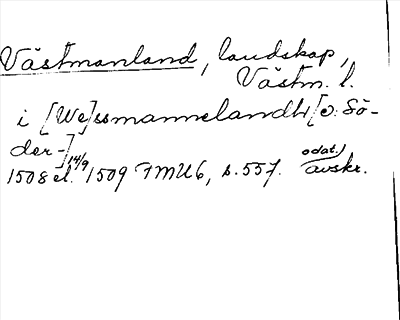 Västmanland, landskap,
Västm. l.
i [We]ssmannelandh [o. Sö-
der-]
1508 el. 14/9 1509 FMU 6, s. 557. odat. avskr.